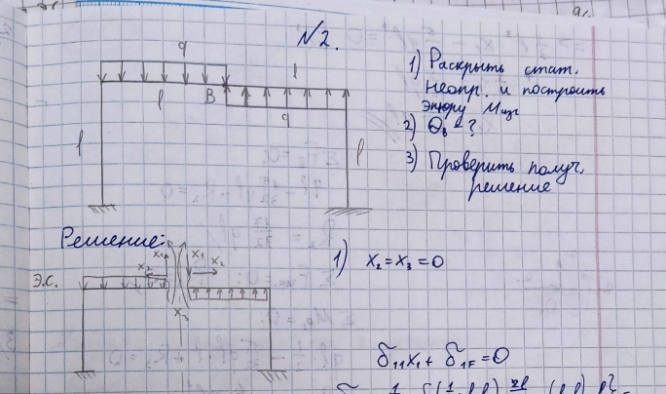 N2.
q
l
l
B
q
l
l
1) Раскрыть стат.
неопр. и построить
эпюру Mизг
2) θв - ?
3) Проверить получ.
решение
Решение:
Э.С.
x₁ x₁
x₂ x₂
x₃
1) x₂ = x₃ = 0
δ₁₁x₁ + δ₁F = 0